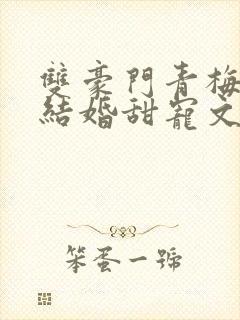 雙豪門青梅
結婚甜寵文
笨蛋一號